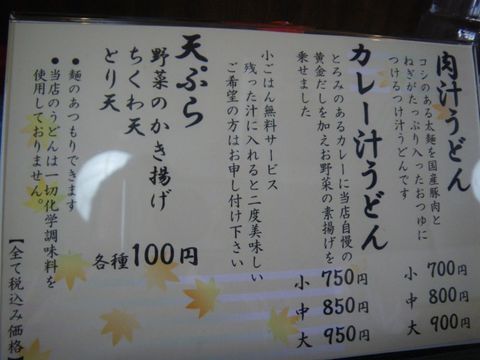 肉汁うどん
コシのある太麺を国産豚肉と
ねぎがたっぷり入ったおつゆに
つけるつけ汁うどんです
小 700円
中 800円
大 900円
カレー汁うどん
とろみのあるカレーに当店自慢の
黄金だしを加えお野菜の素揚げを
乗せました
小 750円
中 850円
大 950円
小ごはん無料サービス
残った汁に入れると二度美味しい
ご希望の方はお申し付け下さい
天ぷら
野菜のかき揚げ
ちくわ天
とり天
各種100円
●麺のあつもりできます
●当店のうどんは一切化学調味料を
使用しておりません。
【全て税込み価格】